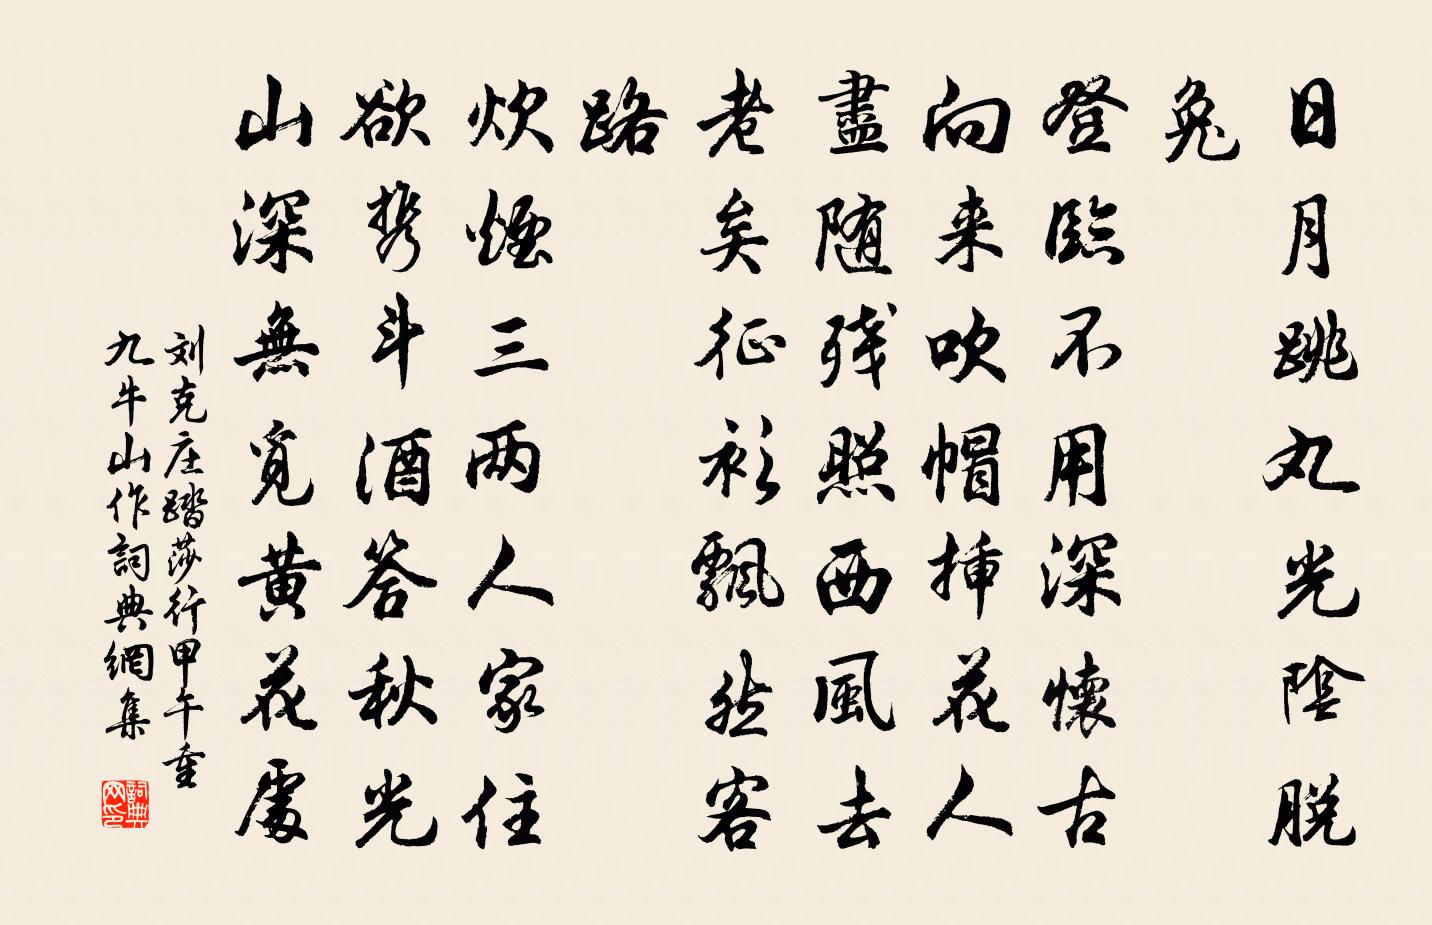 日月跳丸光陰脱
兔
登臨不用深懷古
向来吹帽挿花人
盡随残照西風去
老矣征衫飄然客
路
炊煙三两人家住
欲携斗酒答秋光
山深無覓黄花處
刘克庄踏莎行甲午重
九牛山作詞典網集
詞典
网印